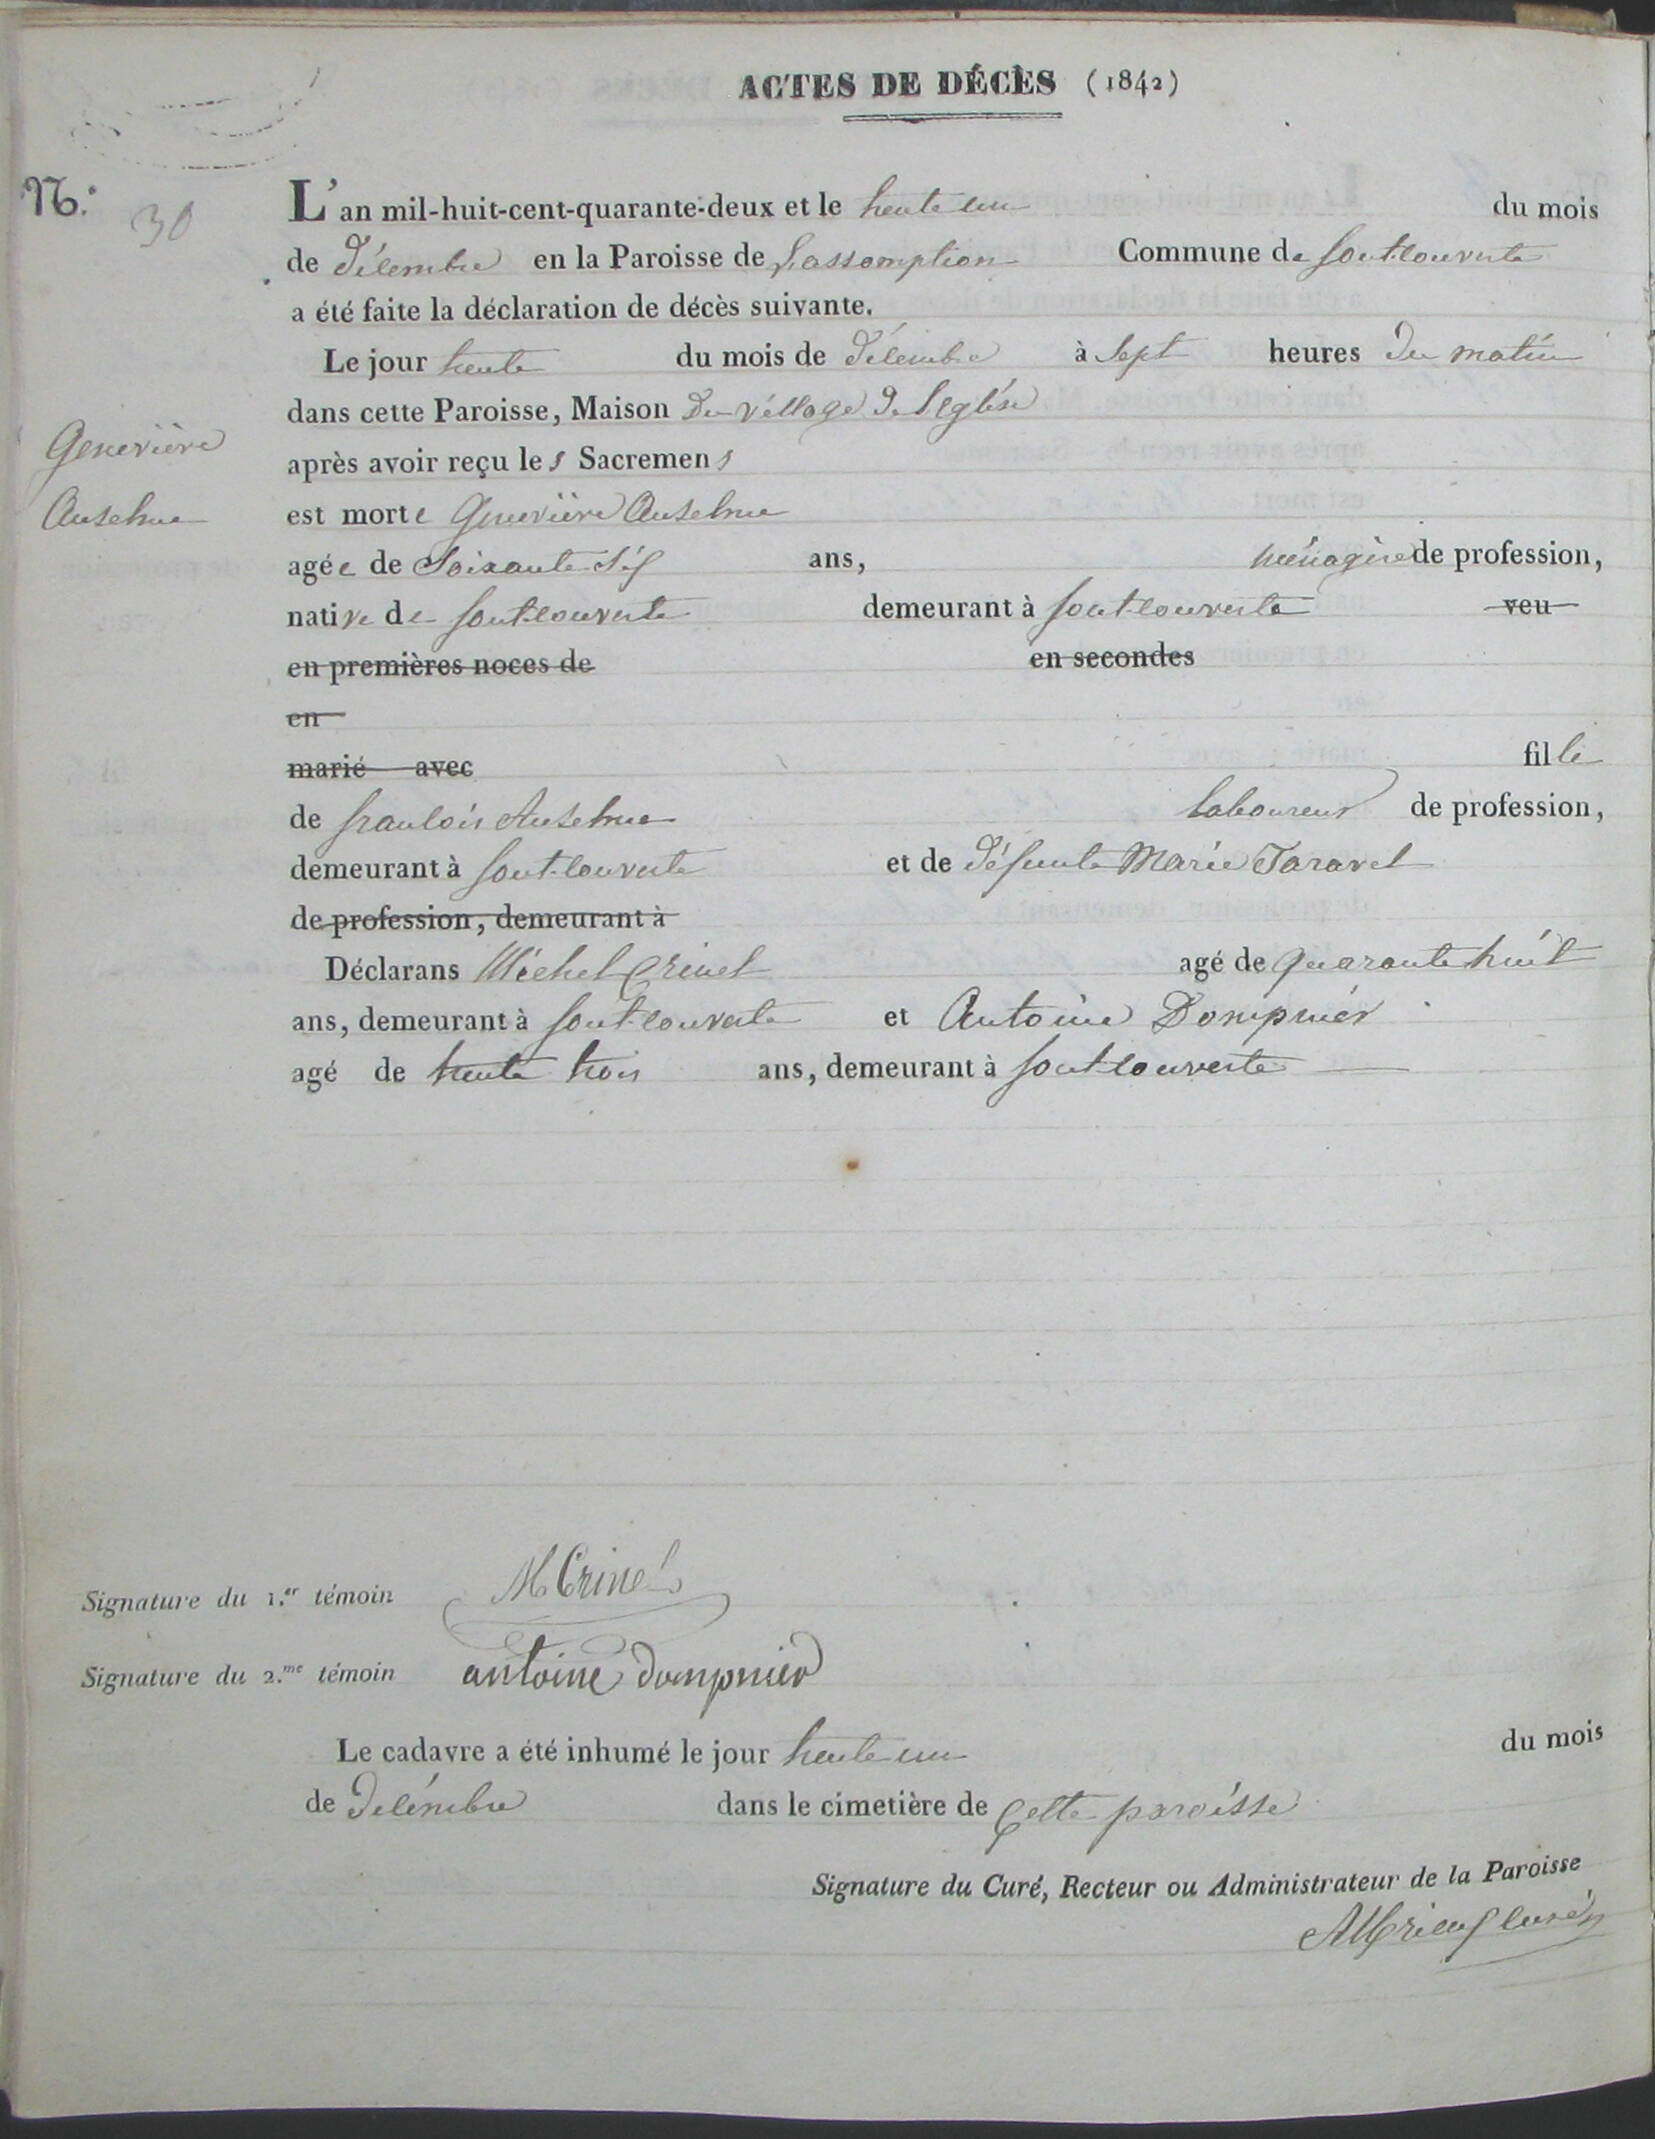 ACTES DE DÉCÈS (1842)
N.º 30
L'an mil-huit-cent-quarante-deux et le trente un du mois
de décembre en la Paroisse de L'assomption Commune de fontcouverte
a été faite la déclaration de décès suivante.
Le jour trente du mois de décembre à sept heures du matin
dans cette Paroisse, Maison du village de l'église
Geneviève
Anselme
après avoir reçu les Sacremens
est morte Geneviève Anselme
agée de soixante dix ans, ménagère de profession,
native de fontcouverte demeurant à fontcouverte veu
en premières noces de en secondes
en
marié avec fille
de francois Anselme laboureur de profession,
demeurant à fontcouverte et de défunte Marie Taravel
de profession, demeurant à
Déclarans Michel Crinel agé de quarante huit
ans, demeurant à fontcouverte et Antoine Dompnier
agé de trente trois ans, demeurant à fontcouverte
Signature du 1.er témoin M Crinel
Signature du 2.me témoin antoine dompnier
Le cadavre a été inhumé le jour trente un du mois
de décembre dans le cimetière de cette paroisse
Signature du Curé, Recteur ou Administrateur de la Paroisse
curé